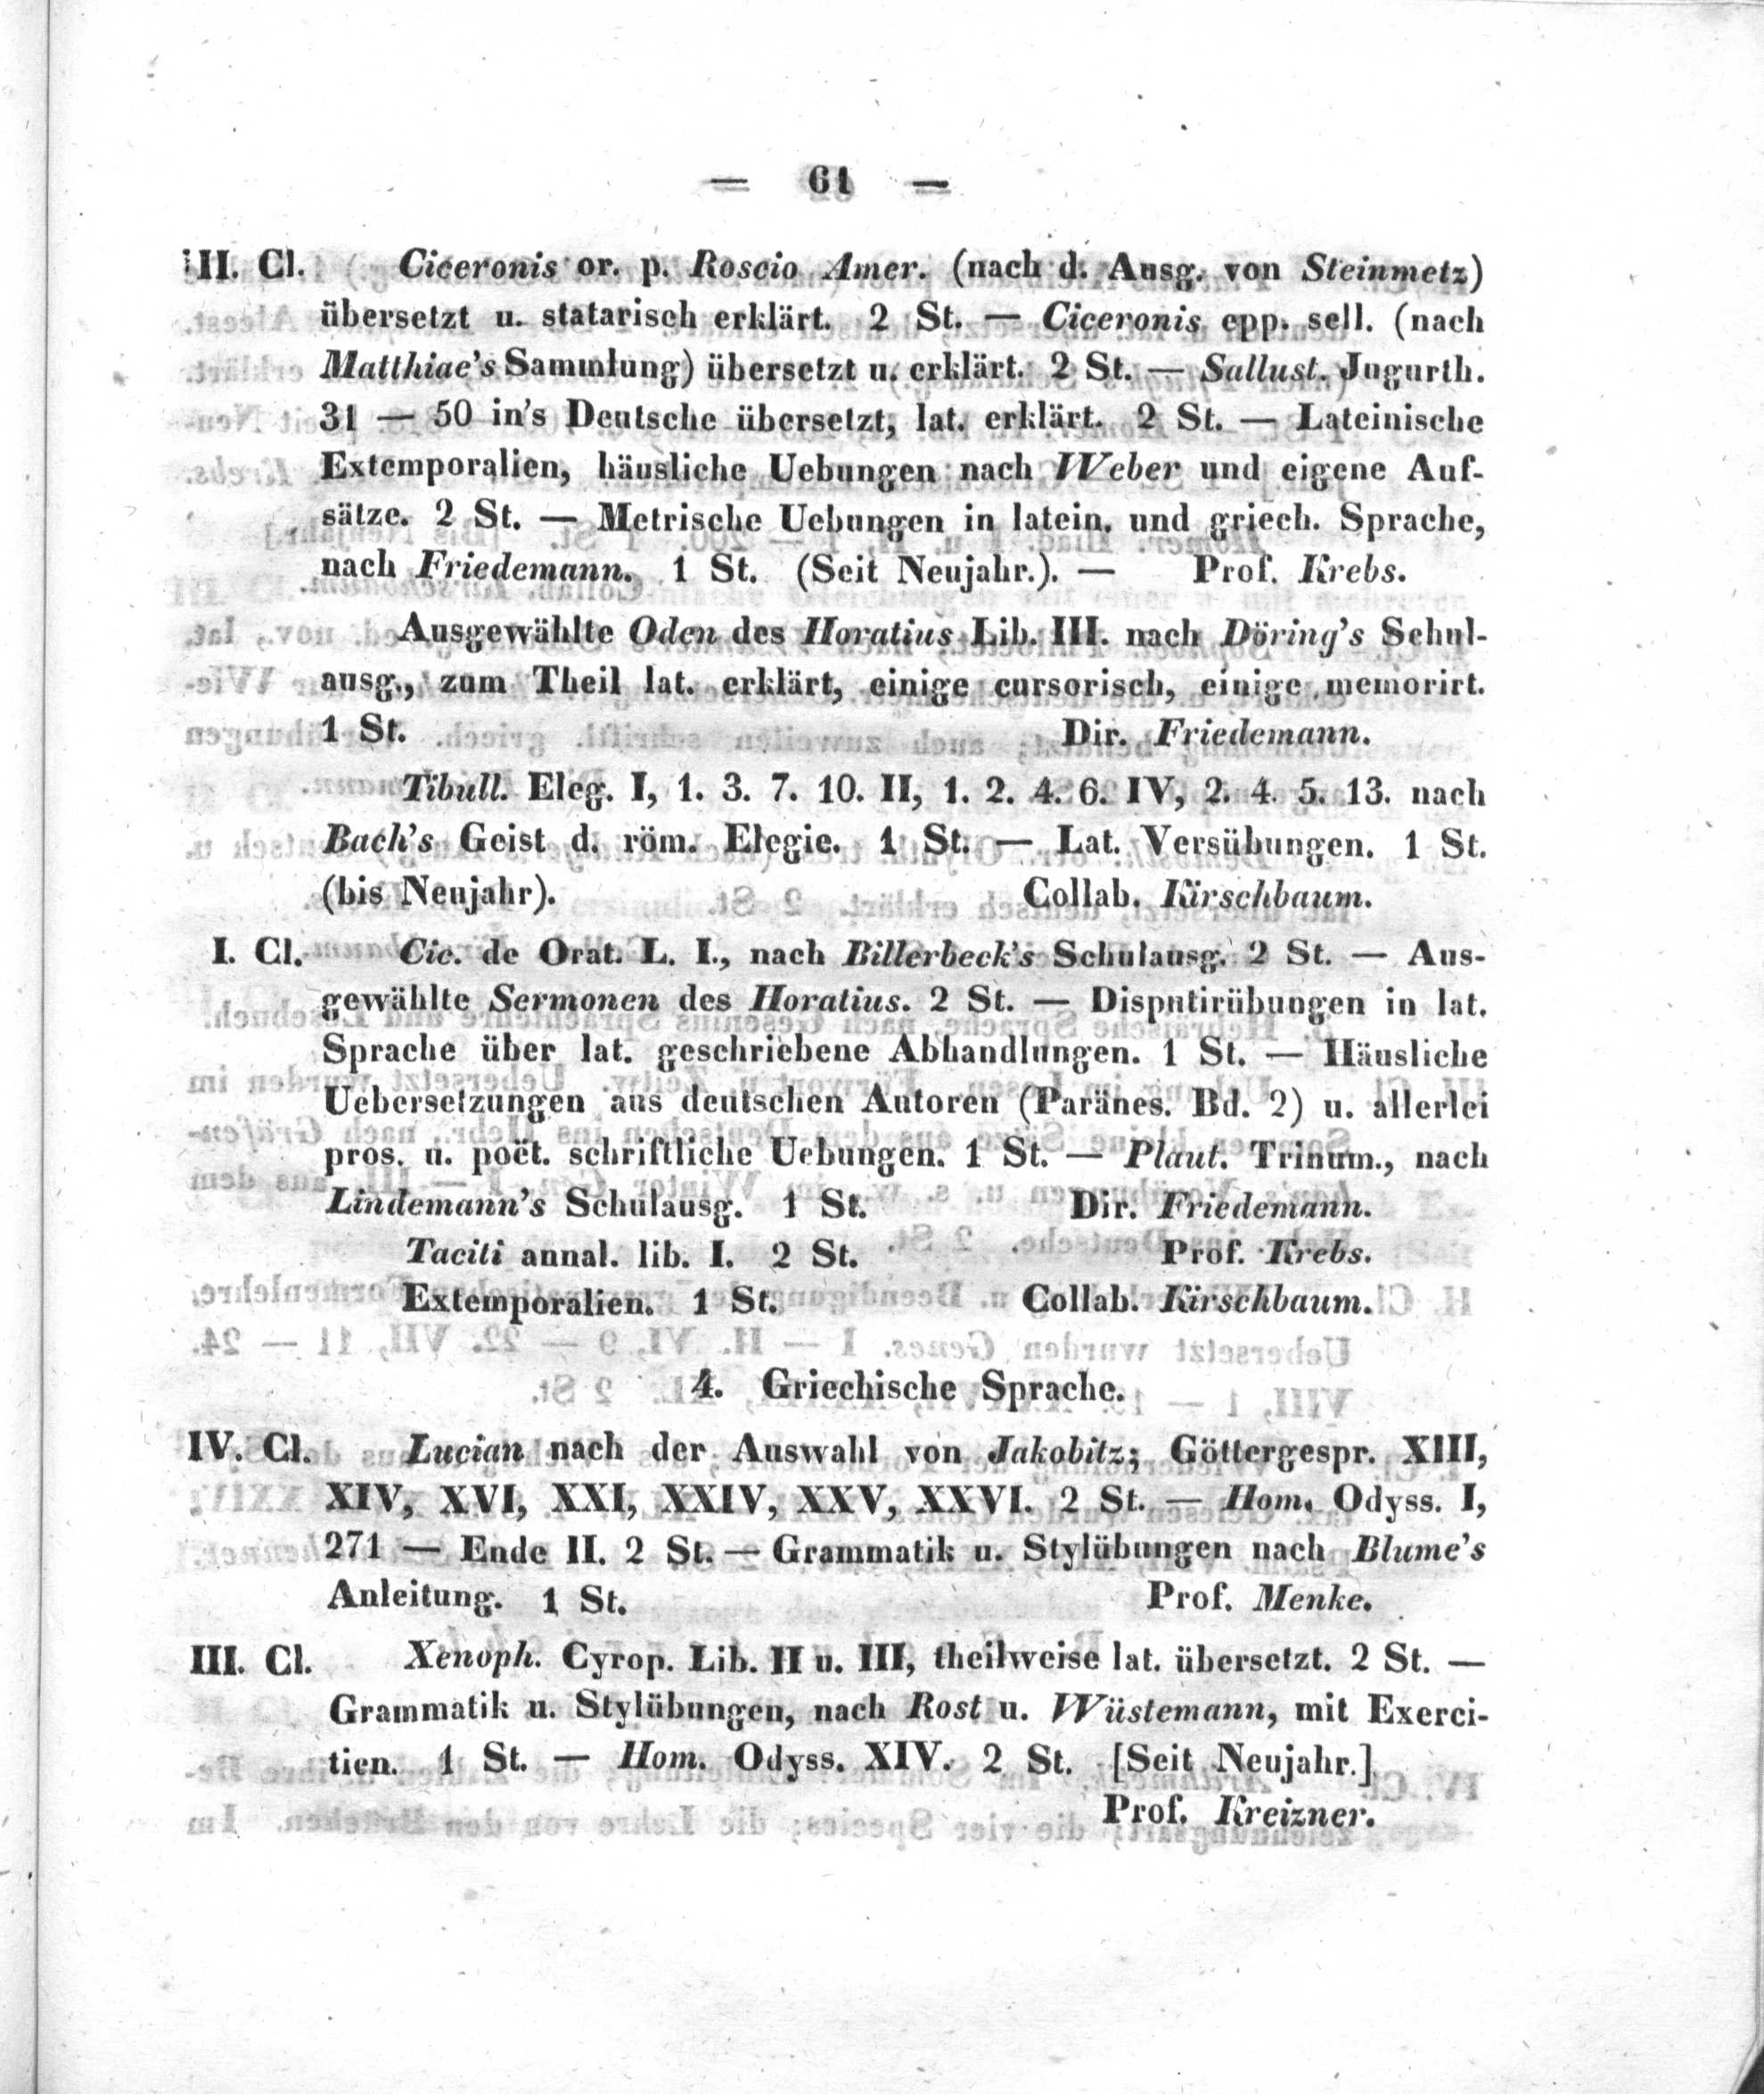 — 61 —
II. Cl. Ciceronis or. p. Roscio Amer. (nach d. Ausg. von Steinmetz)
übersetzt u. statarisch erklärt. 2 St. — Ciceronis epp. sell. (nach
Matthiae's Sammlung) übersetzt u. erklärt. 2 St. — Sallust. Jugurth.
31 — 50 in's Deutsche übersetzt, lat. erklärt. 2 St. — Lateinische
Extemporalien, häusliche Uebungen nach Weber und eigene Auf-
sätze. 2 St. — Metrische Uebungen in latein. und griech. Sprache,
nach Friedemann. 1 St. (Seit Neujahr.). — Prof. Krebs.
Ausgewählte Oden des Horatius Lib. III. nach Döring's Schul-
ausg., zum Theil lat. erklärt, einige cursorisch, einige memorirt.
1 St. Dir. Friedemann.
Tibull. Eleg. I, 1. 3. 7. 10. II, 1. 2. 4. 6. IV, 2. 4. 5. 13. nach
Bach's Geist d. röm. Elegie. 1 St. — Lat. Versübungen. 1 St.
(bis Neujahr). Collab. Kirschbaum.
I. Cl. Cic. de Orat. L. I., nach Billerbeck's Schulausg. 2 St. — Aus-
gewählte Sermonen des Horatius. 2 St. — Disputirübungen in lat.
Sprache über lat. geschriebene Abhandlungen. 1 St. — Häusliche
Uebersetzungen aus deutschen Autoren (Paränes. Bd. 2) u. allerlei
pros. u. poët. schriftliche Uebungen. 1 St. — Plaut. Trinum., nach
Lindemann's Schulausg. 1 St. Dir. Friedemann.
Taciti annal. lib. I. 2 St. Prof. Krebs.
Extemporalien. 1 St. Collab. Kirschbaum.
4. Griechische Sprache.
IV. Cl. Lucian nach der Auswahl von Jakobitz; Göttergespr. XIII,
XIV, XVI, XXI, XXIV, XXV, XXVI. 2 St. — Hom. Odyss. I,
271 — Ende II. 2 St. — Grammatik u. Stylübungen nach Blume's
Anleitung. 1 St. Prof. Menke.
III. Cl. Xenoph. Cyrop. Lib. II u. III, theilweise lat. übersetzt. 2 St. —
Grammatik u. Stylübungen, nach Rost u. Wüstemann, mit Exerci-
tien. 1 St. — Hom. Odyss. XIV. 2 St. [Seit Neujahr.]
Prof. Kreizner.